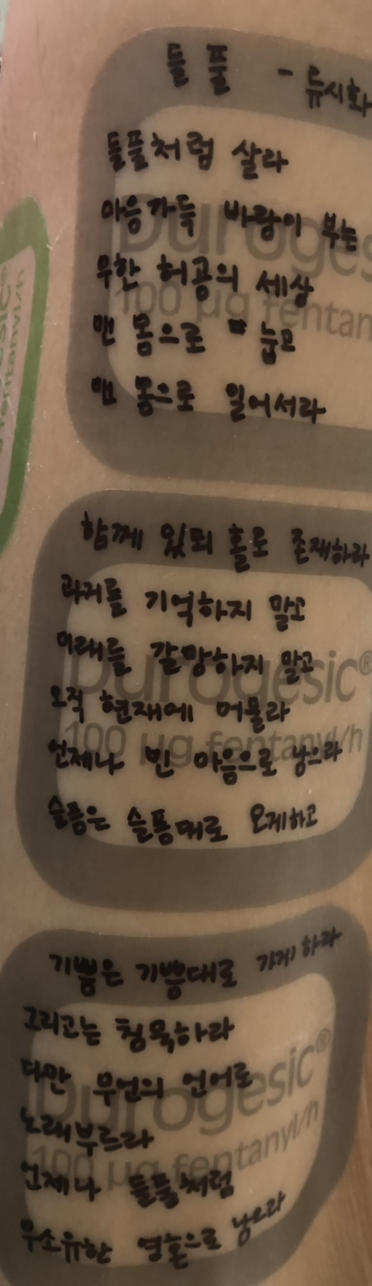 들풀 - 류시화
들풀처럼 살라
마음가득 바람이 부는
무한 허공의 세상
맨 몸으로 눕고
맨 몸으로 일어서라
함께 있되 홀로 존재하라
과거를 기억하지 말고
미래를 갈망하지 말고
오직 현재에 머물라
언제나 빈 마음으로 남으라
슬픔은 슬픔대로 오게하고
기쁨은 기쁨대로 가게 하라
그리고는 침묵하라
다만 무언의 언어로
노래부르라
언제나 들풀처럼
무소유한 영혼으로 남으라
Durogesic
100 µg fentanyl/h
Durogesic®
100 µg fentanyl/h
Durogesic®
100 µg fentanyl/h